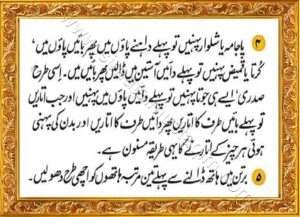 ۴ پاجامہ یا شلوار پہنیں تو پہلے داہنے پاؤں میں پھر بائیں پاؤں میں،
کرتا یا قمیض پہنیں تو پہلے دائیں آستین میں ڈالیں پھر بائیں میں۔ اسی طرح
صدری، ایسے ہی جوتا پہنیں تو پہلے دائیں پاؤں میں پہنیں اور جب اتاریں
تو پہلے بائیں طرف کا اتاریں پھر دائیں طرف کا اتاریں اور بدن کی پہنی
ہوئی ہر چیز کے اتارنے کا یہی طریقہ مسنون ہے۔
۵ برتن میں ہاتھ ڈالنے سے پہلے تین مرتبہ ہاتھوں کو اچھی طرح دھولیں۔